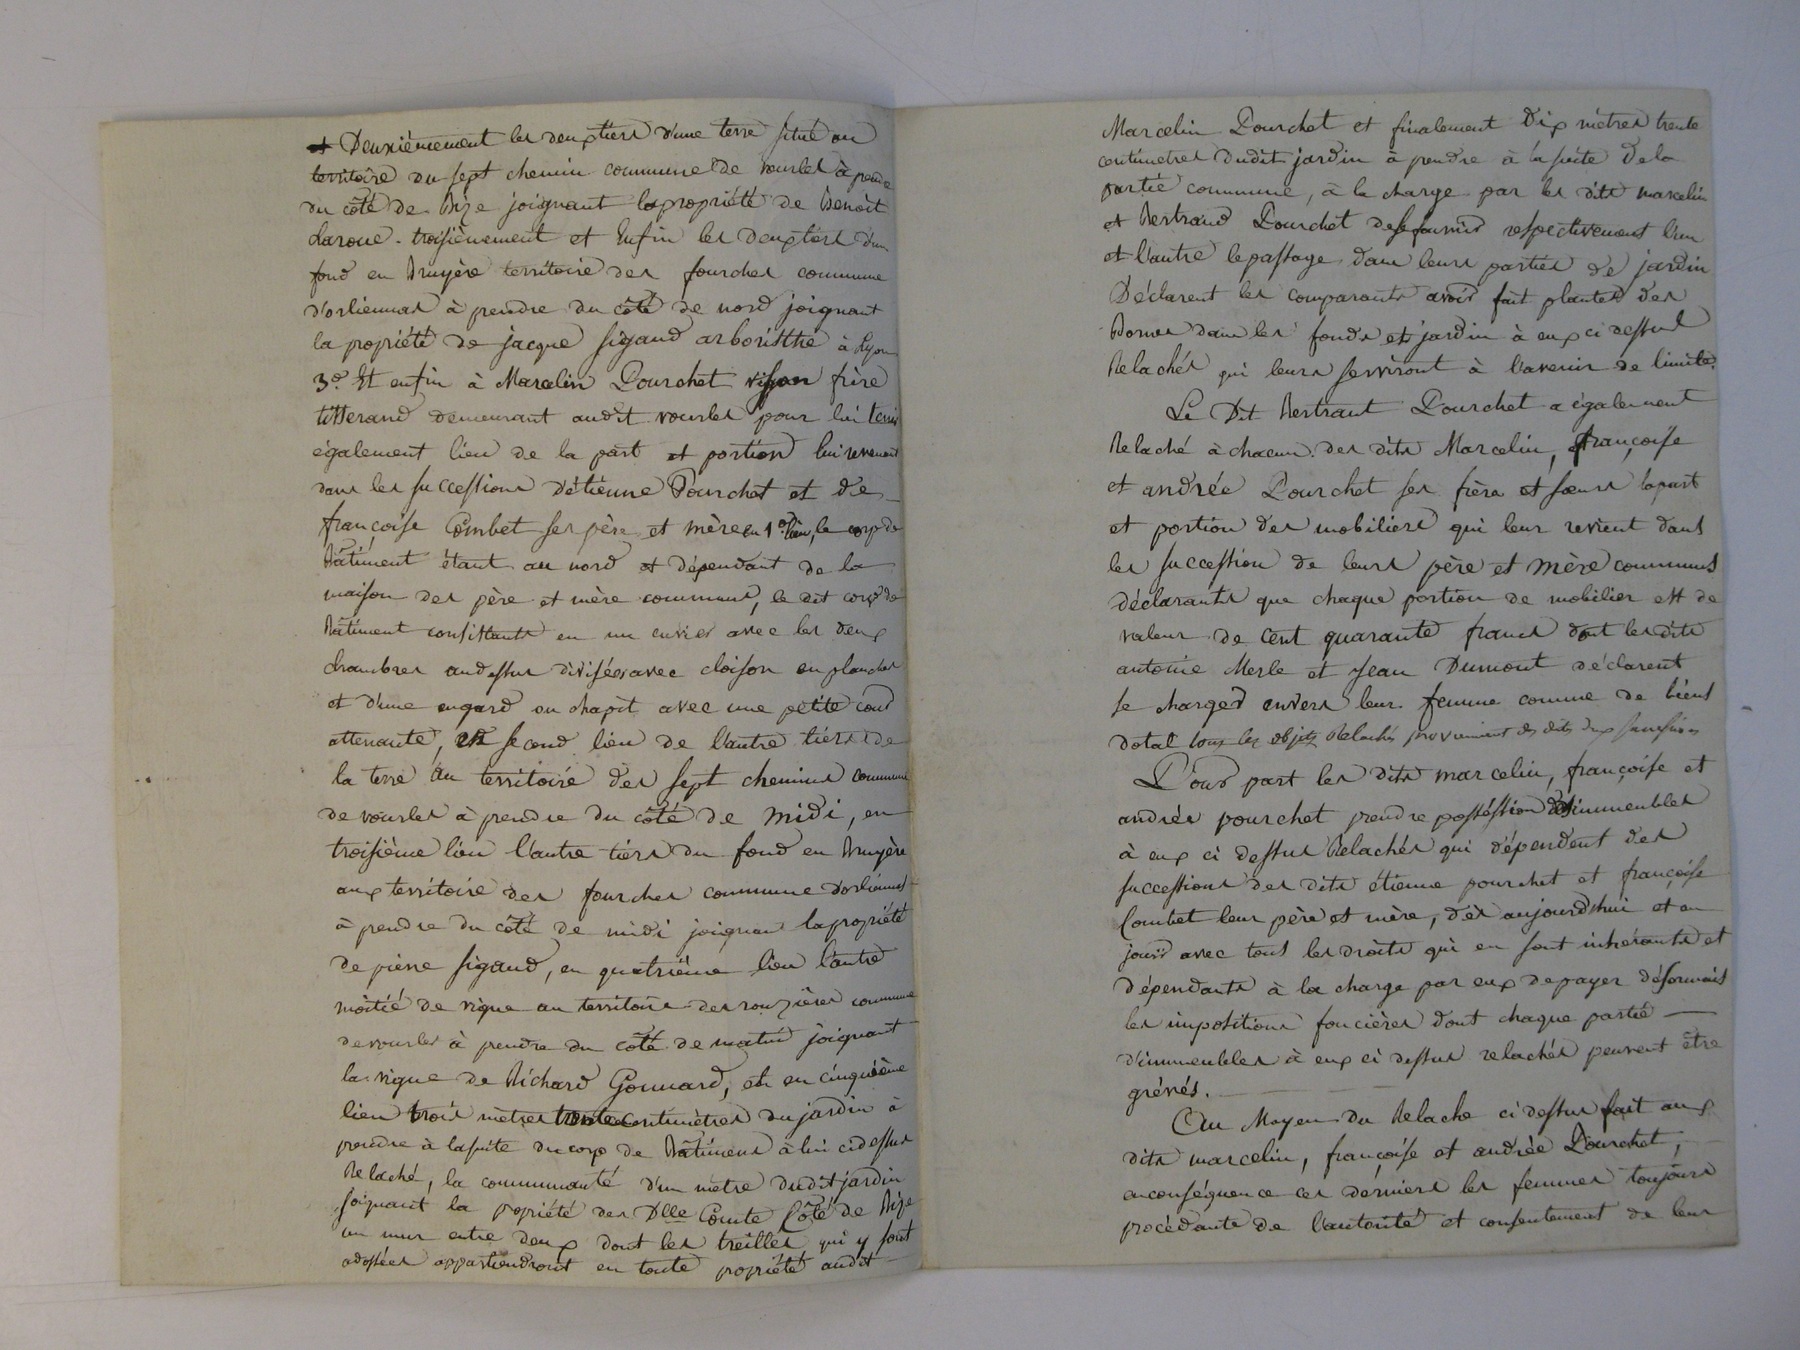 Deuxièmement les deux tiers d'une terre situé au
territoire du sept chemin commune de vourles à prendre
du côté de Bize joignant la propriété de Benoit
Laroue. troisièmement et Enfin les deux tiers d'un
fond en Bruyère territoire des fourches commune
d'orliennas à prendre du côté de nord joignant
la propriété de jacque sigaud arboristhe à Lyon
3º. Et enfin à Marcelin Pourchet son frère
titterand demeurant audit vourles pour lui tenir
également lieu de la part et portion lui revenant
dans les successions d'étienne Pourchet et de
françoise Combet ses père et mère en 1er lieu, le corp de
Bâtiment étant au nord et dépendant de la
maison des père et mère communs, le dit corp de
bâtiment consistant en un cuvier avec les deux
chambres au dessus divisées avec cloison en planches
et d'une engard ou chapit avec une petite cour
attenante, en second lieu de l'autre tiers de
la terre au territoire des sept chemins commune
de vourles à prendre du côté de midi, en
troisième lieu l'autre tiers du fond en Bruyère
aux territoire des fourches commune d'orliennas
à prendre du côté de midi joignan la propriété
de pierre sigaud, en quatrième lieu l'autre
moitié de vigne au territoire des rouzières commune
de vourles à prendre du côté de matin joignant
la vigne de Richard Gonnard, et en cinquième
lieu trois mètres trente centimètres du jardin à
prendre à la suite du corp de Bâtiment à lui ci dessus
Relaché, la communauté d'un mètre dudit jardin
joignant la propriété des Dlle Comte Côté de Bize
un mur entre deux dont les treilles qui y sont
adossées appartiendront en toute propriété audit
Marcelin Pourchet et finalement dix mètres trente
centimetres dudit jardin à prendre à la suite de la
partie commune, à la charge par les dits marcelin
et Bertrand Pourchet de se fournir respectivement l'un
et l'autre le passage dans leurs parties de jardin
Déclarent les comparants avoir fait planter des
Bornes dans les fonds et jardin à eux ci dessus
Relachés qui leurs serviront à l'avenir de limites.
Le Dit Bertrant Pourchet a également
Relaché à chacun des dits Marcelin, françoise
et andrée Pourchet ses frère et sœurs la part
et portion des mobiliers qui leur revient dans
les succession de leurs père et mère communs
déclarants que chaque portion de mobilier est de
valeur de cent quarante francs dont les dits
antoine Merle et Jean Dumont déclarent
se charger envers leur femme comme de biens
dotal tous les objets Relachés proviennent des dits deux successions
Pour part les dits marcelin, françoise et
andrée pourchet prendre posséssion des immeubles
à eux ci dessus Relachés qui dépendent des
successions des dits étienne pourchet et françoise
Combet leur père et mère, dès aujourd'hui et en
jouir avec tous les droits qui en sont inhérants et
dépendants à la charge par eux de payer désormais
les impositions foncières dont chaque partie
d'immeubles à eux ci dessus relachés peuvent être
grévés.
Au Moyen du Relache ci dessus fait aux
dits marcelin, françoise et andrée Pourchet,
en conséquence ces derniers les femmes toujours
procédante de l'autorité et consentement de leur